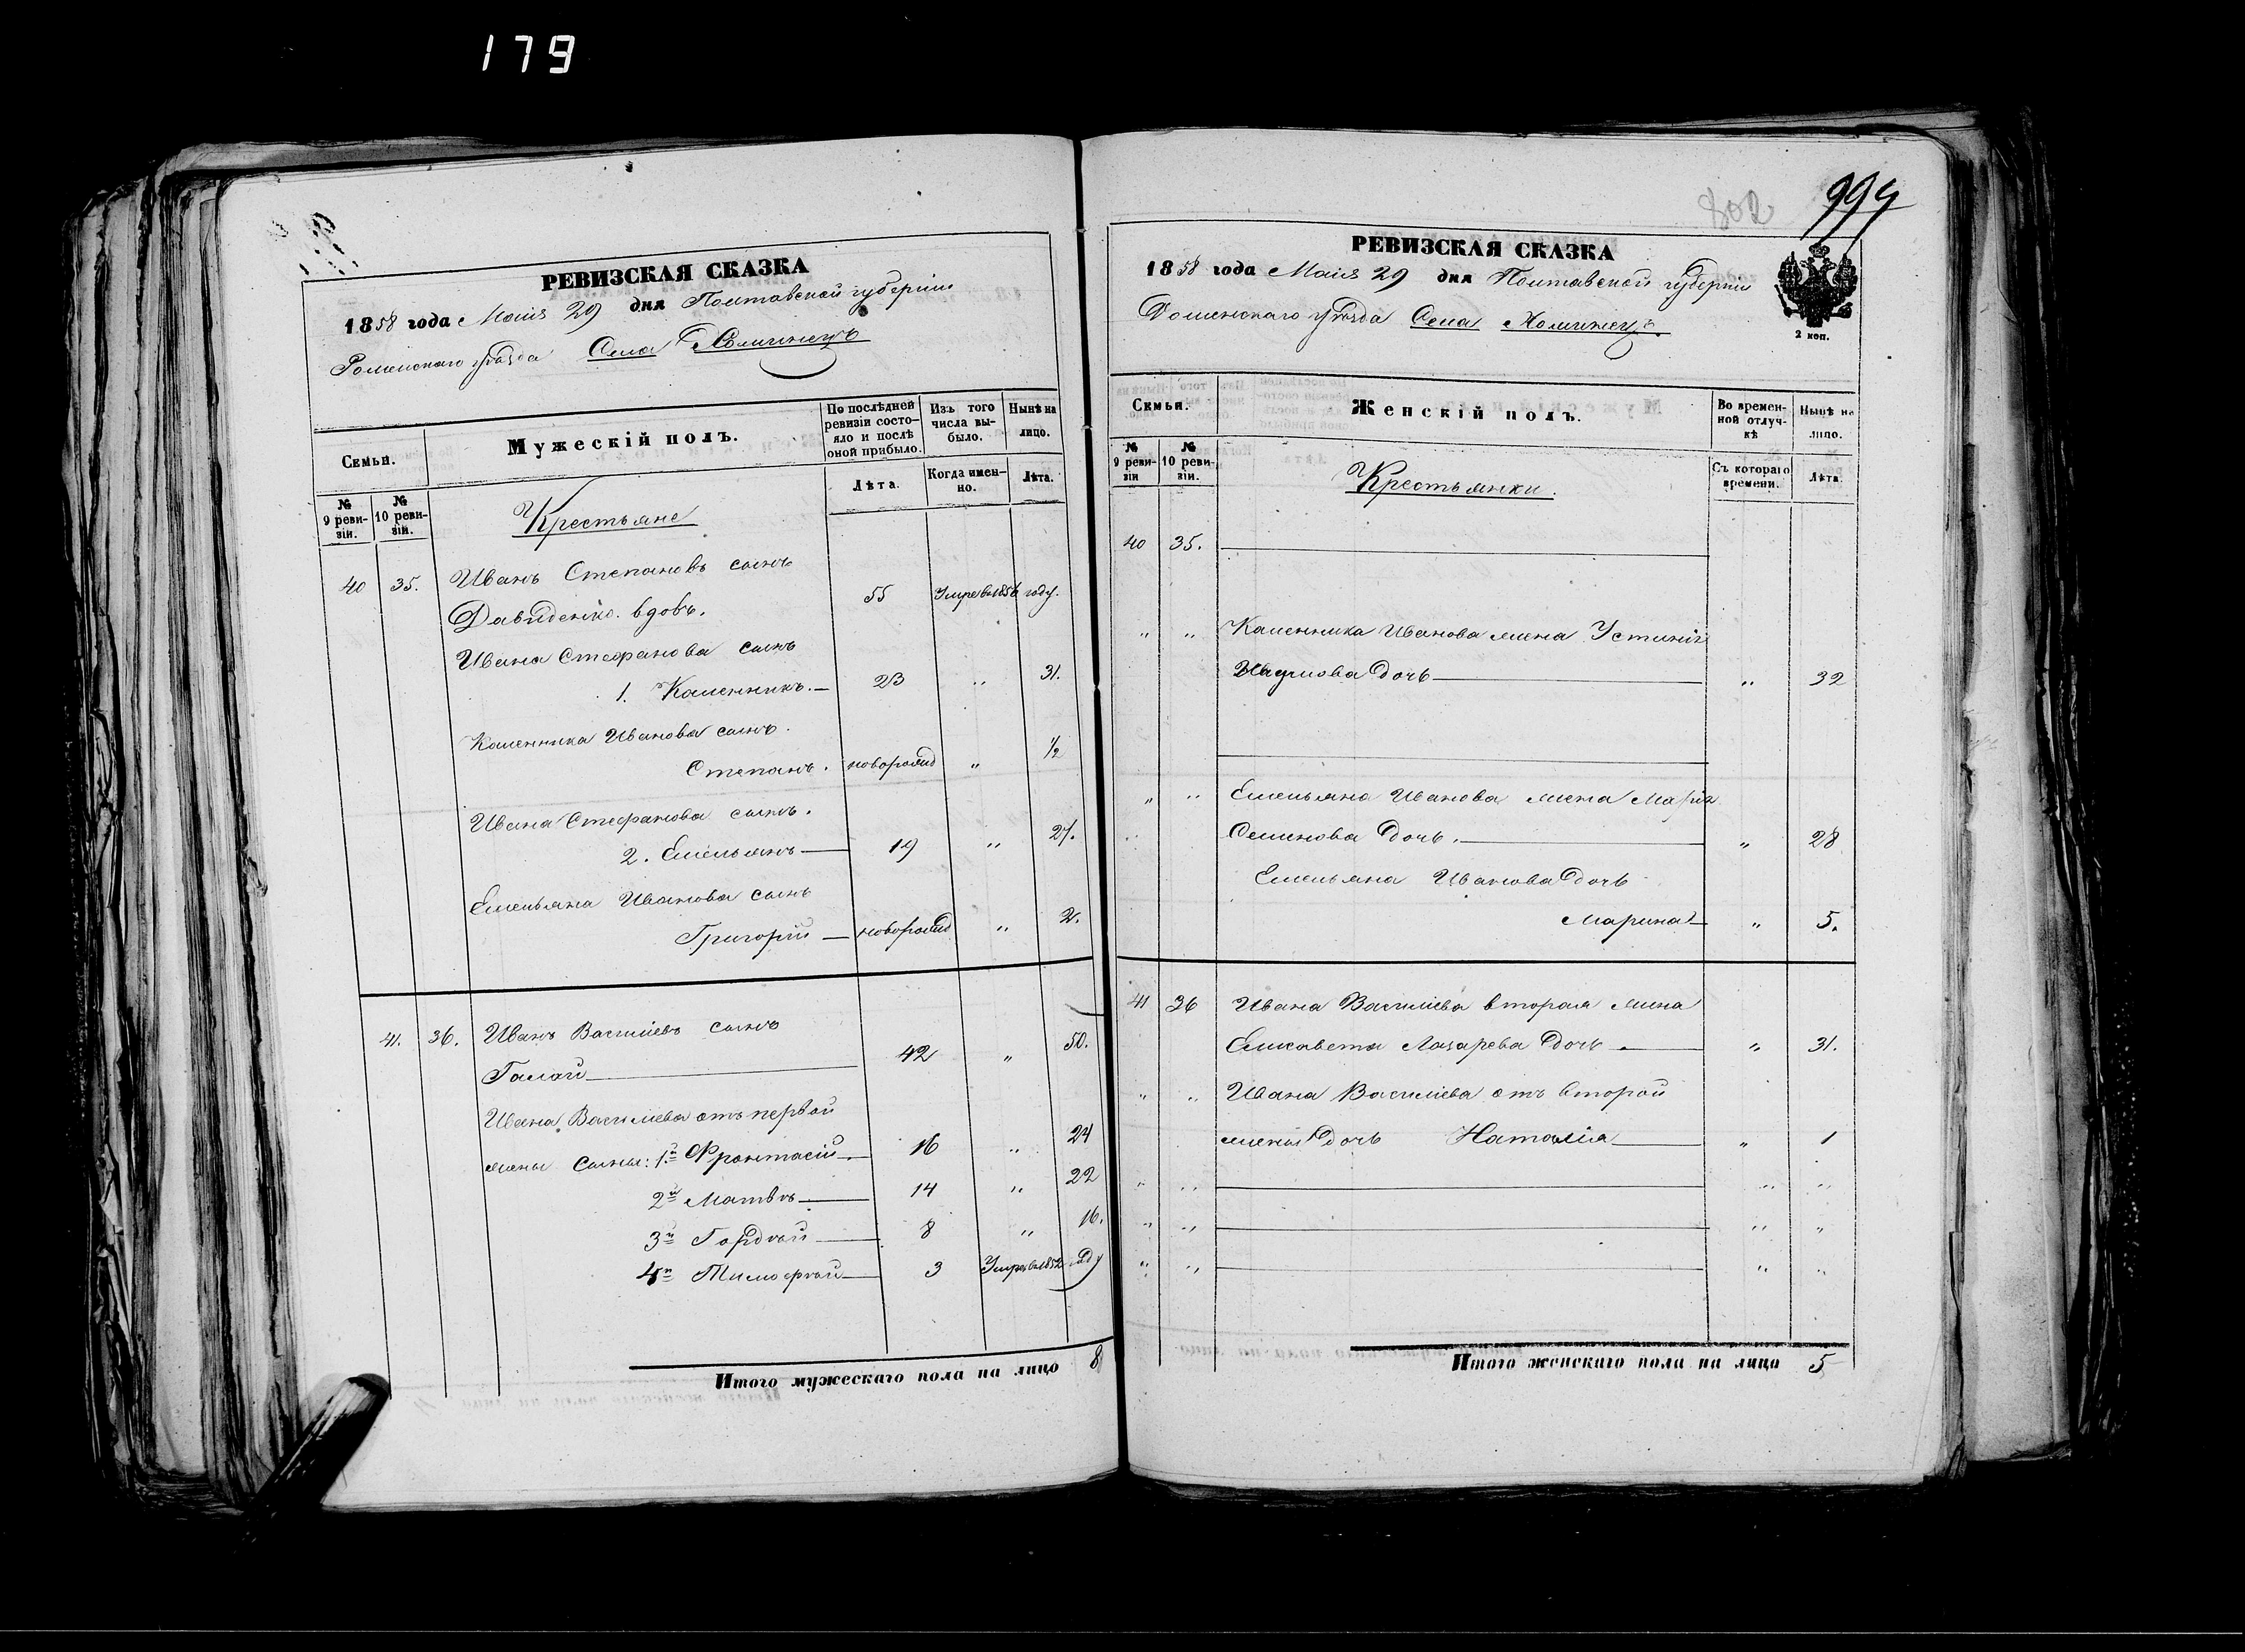 179
РЕВИЗСКАЯ СКАЗКА
1858 года Маия 29 дня Полтавской губернiи
Роменскаго уѣзда Села Хоминецъ
Семьи.
Мужескiй полъ.
По послѣдней ревизiи состояло и послѣ оной прибыло.
Изъ того числа выбыло.
Нынѣ на лицо.
№ 9 ревизiи.
№ 10 ревизiи.
Лѣта.
Когда именно.
Лѣта.
Крестьяне
40 35. Иванъ Степановъ сынъ
Давиденко. вдовъ. 55 Умре въ 1856 году.
Ивана Стефанова сынъ
1. Каленникъ. 23 " 31.
Каленника Иванова сынъ.
Степанъ. новорожд " 1/2
Ивана Стефанова сынъ.
2. Емельянъ 19 " 27.
Емельяна Иванова сынъ
Григорiй новорожд " 2.
41. 36. Иванъ Василiевъ сынъ
Галай 42 " 50.
Ивана Василiева отъ первой
жены сыны: 1й 16 " 24
2й Матвѣ 14 " 22
3й Гордѣй 8 " 16.
4й Тимофѣй 3 Умре въ 1852 году
Итого мужескаго пола на лицо 8
802
994
РЕВИЗСКАЯ СКАЗКА
1858 года Маия 29 дня Полтавской губернiи
Роменскаго уѣзда Села Хоминецъ
2 коп.
Семьи.
Женскiй полъ.
Во временной отлучкѣ
Нынѣ на лицо.
№ 9 ревизiи
№ 10 ревизiи.
Съ котораго времени.
Лѣта
Крестьянки.
40 35.
" " Каленника Иванова жена Устинiя
Наумова дочь " 32
" " Емельяна Иванова жена Марiя
Семенова дочь. " 28
Емельяна Иванова дочь
Марина " 5.
41 36 Ивана Василiева вторая жена
Елисавета Лазарева дочь " 31.
" " Ивана Василiева отъ второй
жены дочь Наталiя " 1
" " " "
" " " "
" " " "
Итого женскаго пола на лицо 5